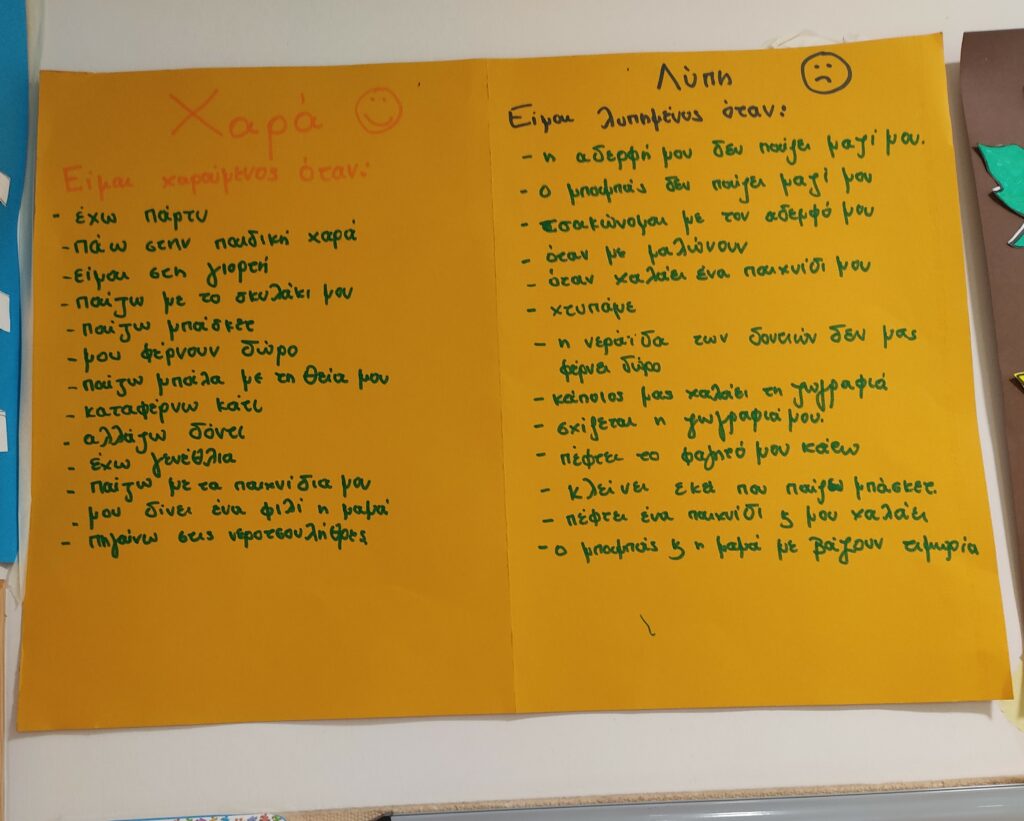 Χαρά
Είμαι χαρούμενος όταν:
- έχω πάρτυ
- πάω στην παιδική χαρά
- είμαι στη γιορτή
- παίζω με το σκυλάκι μου
- παίζω μπάσκετ
- μου φέρνουν δώρο
- παίζω μπάλα με τη θεία μου
- καταφέρνω κάτι
- αλλάζω δόντι
- έχω γενέθλια
- παίζω με τα παιχνίδια μου
- μου δίνει ένα φιλί η μαμά
- πηγαίνω στις νεροτσουλήθρες
Λύπη
Είμαι λυπημένος όταν:
- η αδερφή μου δεν παίζει μαζί μου.
- ο μπαμπάς δεν παίζει μαζί μου
- τσακώνομαι με τον αδερφό μου
- όταν με μαλώνουν
- όταν χαλάει ένα παιχνίδι μου
- χτυπάμε
- η νεράιδα των δοντιών δεν μας
φέρνει δώρο
- κάποιος μας χαλάει τη ζωγραφιά
- σχίζεται η ζωγραφιά μου.
- πέφτει το φαγητό μου κάτω
- κλείνει εκεί που παίζω μπάσκετ.
- πέφτει ένα παιχνίδι ς μου χαλάει
- ο μπαμπάς ς η μαμά με βάζουν τιμωρία